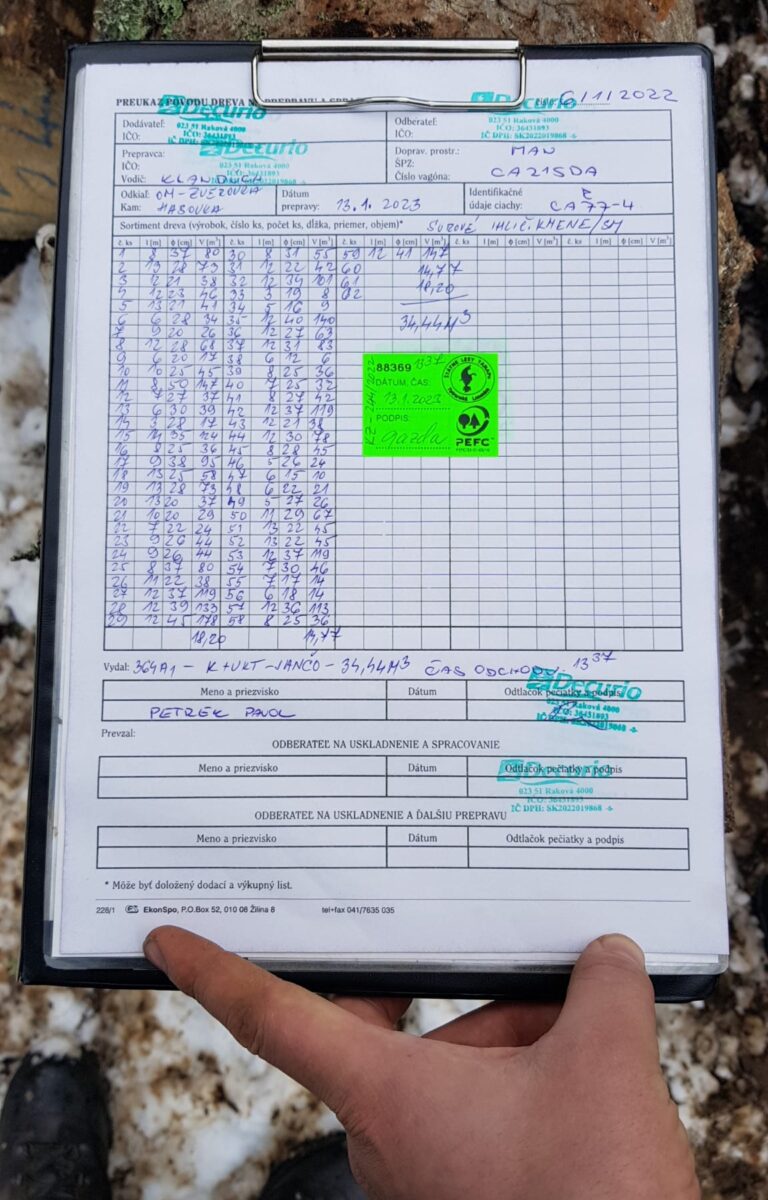 PREUKAZ POVODU DREVA NA PREPRAVU A
Decurio Decurio 6/11 2022
Dodávateľ: 023 51 Raková 4000 Odberateľ:
IČO: IČO: 36431893 IČO: IČO: 36431893
IČ DPH: SK2022019868
Prepravca: Decurio Doprav. prostr.: MAN
IČO: 023 51 Raková 4000 ŠPZ:
Vodič: Číslo vagóna: CA215DA
Odkiaľ: OM-ZVEROVKA Dátum Identifikačné R
Kam: HABOVKA prepravy: 13.1.2023 údaje ciachy: CA77-4
Sortiment dreva (výrobok, číslo ks, počet ks, dĺžka, priemer, objem)* SUROVÉ IHLIČ.KMENE/SM
č. ks l [m] ϕ [cm] V [m³] č. ks l [m] ϕ [cm] V [m³] č. ks l [m] ϕ [cm] V [m³] č. ks l [m] ϕ [cm] V [m³] č. ks l [m] ϕ [cm] V [m³]
1 8 37 80 30 8 31 55 59 12 41 147
2 13 28 73 31 12 22 42 60 14,77
3 12 21 38 32 12 34 101 61 18,20
4 12 23 46 33 3 19 8 62
5 13 21 41 34 5 16 9
6 6 28 34 35 12 40 140 34,44M³
7 9 20 26 36 12 27 63
8 12 28 68 37 12 31 83
9 6 20 17 38 6 12 6
10 10 25 45 39 8 25 36
11 8 50 147 40 7 25 32
12 7 27 37 41 8 27 42
13 6 30 39 42 12 37 119
14 3 28 17 43 12 21 38
15 14 35 124 44 12 30 78
16 8 25 36 45 8 28 45
17 9 38 95 46 5 26 24
18 13 25 58 47 6 15 10
19 13 28 73 48 6 22 21
20 13 20 37 49 5 27 26
21 10 20 29 50 11 29 67
22 7 22 24 51 13 22 45
23 9 26 44 52 13 22 45
24 9 26 44 53 12 37 119
25 8 37 80 54 7 30 46
26 11 22 38 55 7 17 14
27 12 37 119 56 6 18 14
28 12 39 133 57 12 36 113
29 12 45 178 58 8 25 36
18,20 14,77
88369 13 37
DÁTUM, ČAS:
13.1.2023
PODPIS:
gazda
ŠTÁTNE LESY TANAPU
PEFC
Vydal: 364A1 - K+UKT-JANČO - 34,44M³ ČAS ODCHODU: 13 37
Meno a priezvisko Dátum Odtlačok pečiatky a podpis
Decurio
PETREK PAVOL
Prevzal:
ODBERATEĽ NA USKLADNENIE A SPRACOVANIE
Meno a priezvisko Dátum Odtlačok pečiatky a podpis
Decurio
023 51 Raková 4000
IČO: 36431893
IČ DPH: SK2022019868
ODBERATEĽ NA USKLADNENIE A ĎALŠIU PREPRAVU
Meno a priezvisko Dátum Odtlačok pečiatky a podpis
* Môže byť doložený dodací a výkupný list.
228/1 EkonSpo, P.O.Box 52, 010 08 Žilina 8 tel+fax 041/7635 035